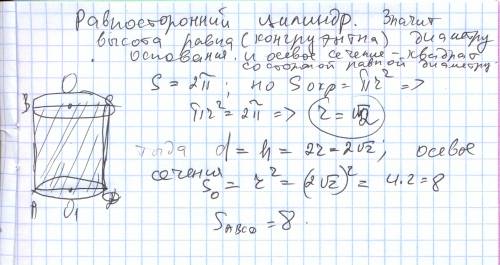 Равносторонний цилиндр. Значит
высота равна (конгруэнтна) диаметру
основания. и осевое сечение - квадрат
со стороной равной диаметру.
S = 2π; но Sокр = πr² =>
πr² = 2π => r = √2
тогда d = h = 2r = 2√2; осевое
сечения
S₀ = r² = (2√2)² = 4·2 = 8
S ABCD = 8.
B O C
A O₁ D